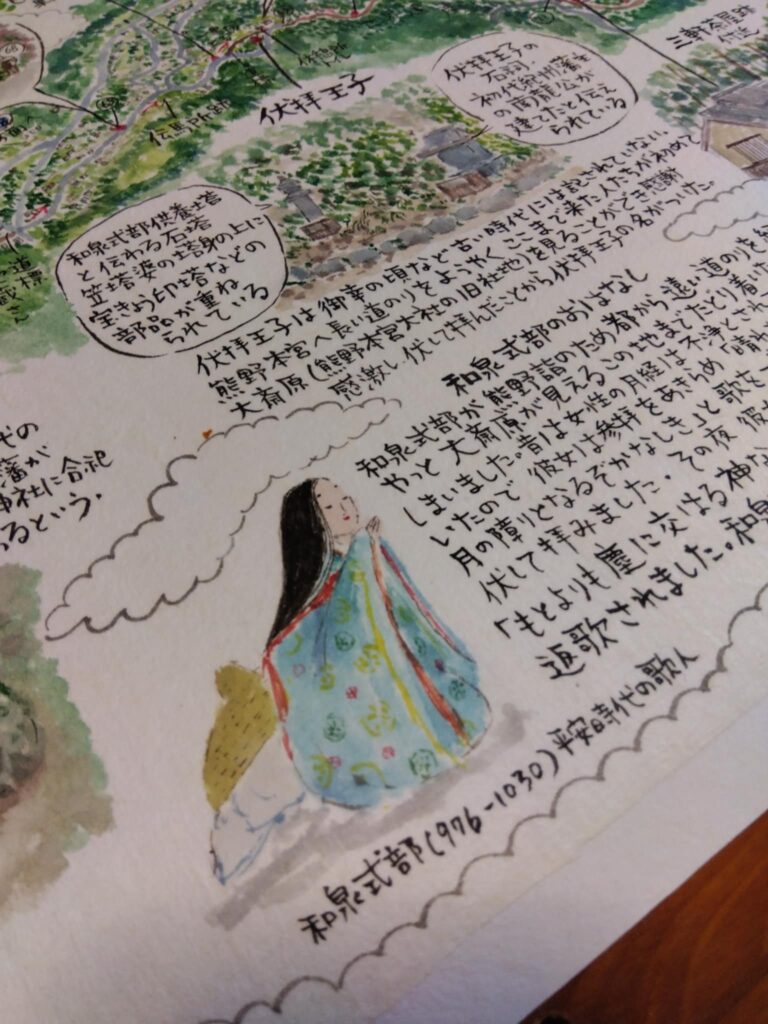 伏拝王子
伏拝王子の
石祠
初代紀州藩主
の南龍公が
建てたと伝え
られている
三軒茶屋跡
和泉式部供養塔
と伝わる石塔
笠塔婆の塔身の上に
宝きょう印塔などの
部品が重ね
られている
伏拝王子は御幸の頃など古い時代には記されていない
熊野本宮へ長い道のりをようやくここまで来た人たちが初め
大斎原(熊野本宮大社の旧社地)を見ることができ感謝
感激し伏して拝んだことから伏拝王子の名がついた
和泉式部のおはなし
和泉式部が熊野詣のため都から遠い道のりを
やっと大斎原が見えるこの地までたどり着いた
しまいました。昔は女性の月経は不浄とされ
いたので 彼女は参拝をあきらめ「晴れ
月の障りとなるぞかなしき」と歌を
伏して拝みました。その夜 彼女
「もとよりも塵に交はる神な
返歌されました。和泉
代の
藩が
神社に合祀
るという.
道標
和泉式部(976-1030)平安時代の歌人